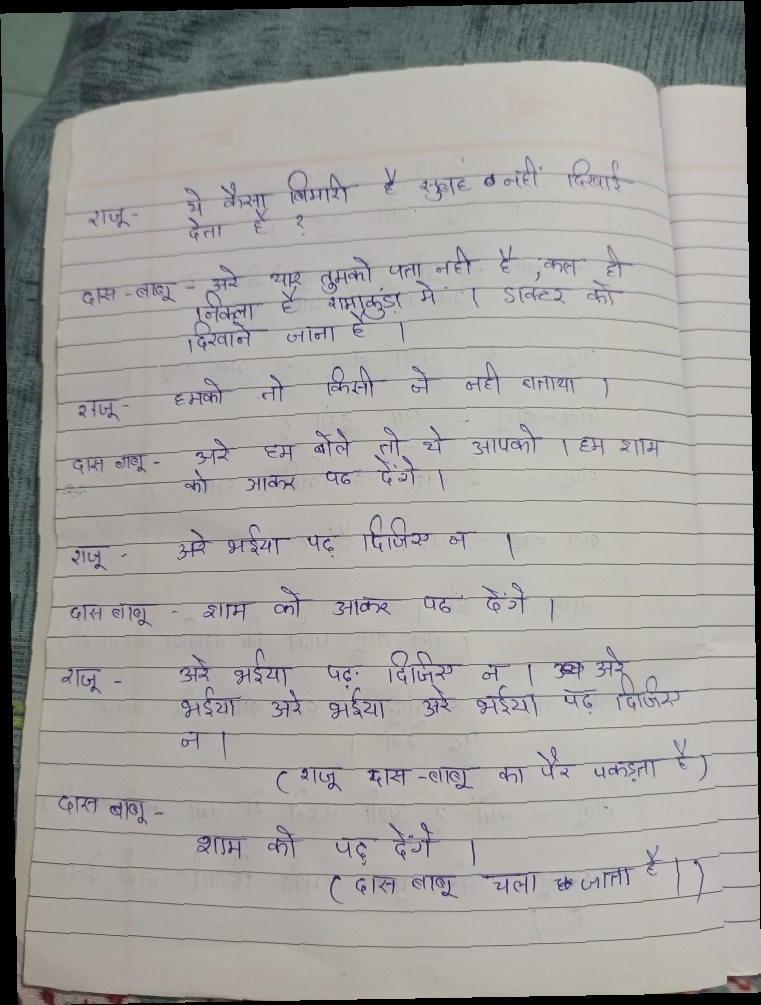 राजू- ये कैसा बिमारी है सुबह नहीं दिखाई
देता है ?
दास-बाबू - अरे यार तुमको पता नही है, कल ही
निकला है रामाकुंड़ा में । डाक्टर को
दिखाने जाना है ।
राजू- हमको तो किसी ने नही बताया ।
दास बाबू - अरे हम बोले तो थे आपको । हम शाम
को आकर पढ देंगे ।
राजू - अरे भईया पढ़ दिजिए न ।
दास बाबू - शाम को आकर पढ देंगे ।
राजू - अरे भईया पढ़ दिजिए न । अरे
भईया अरे भईया अरे भईया पढ़ दिजिए
न ।
(राजू दास-बाबू का पैर पकड़ता है)
दास बाबू -
शाम को पढ़ देंगे ।
(दास बाबू चला जाता है ।)